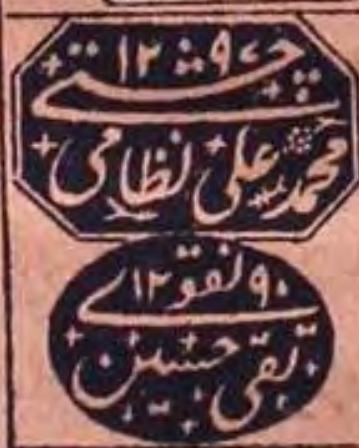 ۱۲۹۷ چشتی
محمد علی نظامی
۱۲۹۰ نقوی
تقی حسین